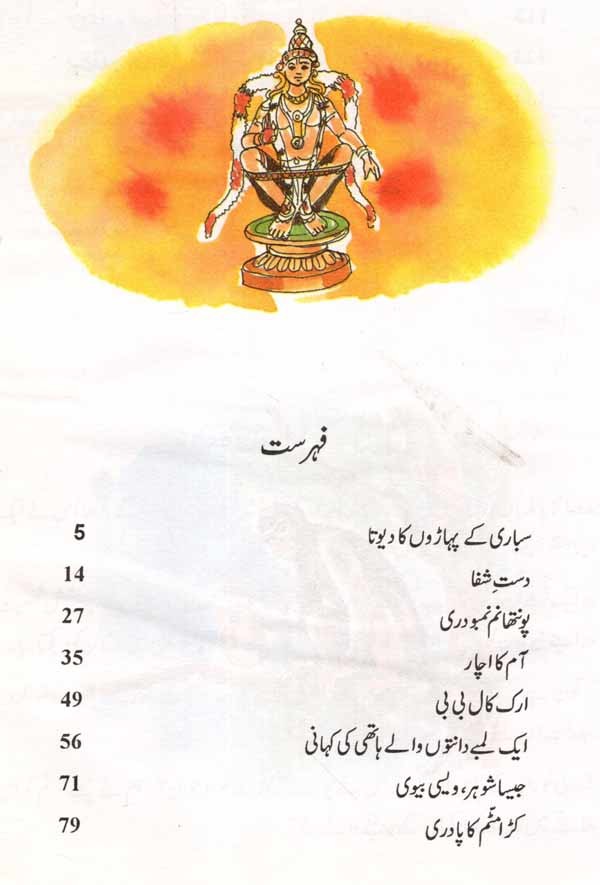 فہرست
سباری کے پہاڑوں کا دیوتا 5
دستِ شفا 14
پونتھانم نمبودری 27
آم کا اچار 35
ارک کال بی بی 49
ایک لمبے دانتوں والے ہاتھی کی کہانی 56
جیسا شوہر، ویسی بیوی 71
کڑامٹّم کا پادری 79